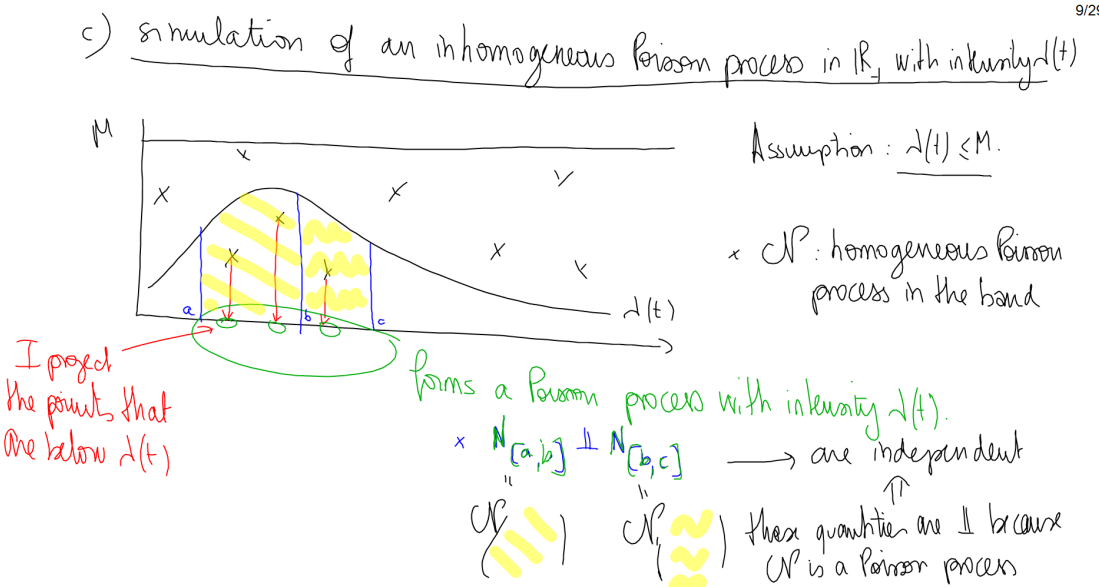 9/29
c) simulation of an inhomogeneous Poisson process in ℝ₊ with intensity λ(t)
M
Assumption : λ(t) ≤ M.
x 𝒩 : homogeneous Poisson
process in the band
λ(t)
a
b
c
I project
the points that
are below λ(t)
forms a Poisson process with intensity λ(t).
x N[a,b] ⫫ N[b,c] ⟶ are independent
= =
⇑
𝒩( ) 𝒩( )
these quantities are ⫫ because
𝒩 is a Poisson process